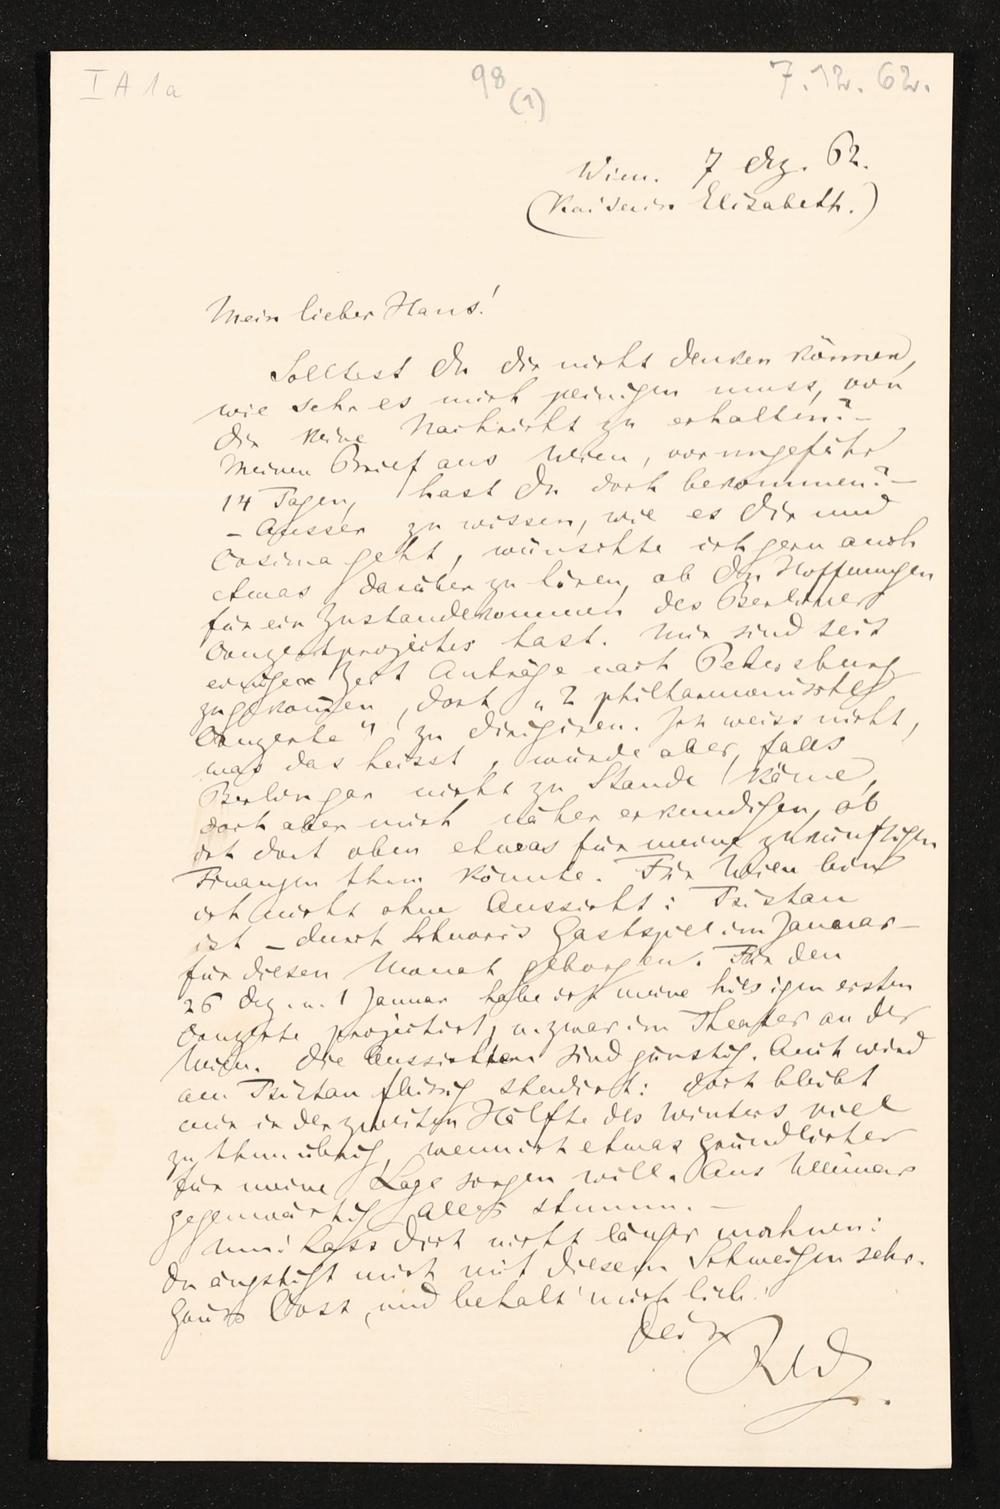 I A 1a
98
(1)
7.12.62.
Wien. 7 Dez. 62.
(Kaiserin Elisabeth.)
Mein lieber Hans!
Solltest Du Dir nicht denken können,
wie sehr es mich peinigen muss, von
Dir keine Nachricht zu erhalten? –
Meinen Brief aus Wien, vor ungefähr
14 Tagen, hast Du doch bekommen? –
– Ausser zu wissen, wie es Dir und
Cosima geht, wünschte ich gern auch
etwas darüber zu hören, ob Du Hoffnungen
für ein Zustandekommen des Berliner
Conzertprojectes hast. Mir sind seit
einiger Zeit Anträge nach Petersburg
zugekommen, dort „2 philharmonische
Conzerte" zu dirigiren. Ich weiss nicht,
was das heisst, würde aber, falls
Berlin gar nicht zu Stande käme,
doch aber mich näher erkundigen, ob
ich dort oben etwas für meine zukünftigen
Finanzen thun könnte. Für Wien bin
ich nicht ohne Aussicht: Tristan
ist – durch Schnorr's Gastspiel im Januar –
für diesen Monat geborgen. Für den
26 Dez. u. 1 Januar habe ich meine hiesigen ersten
Conzerte projectirt, u. zwar im Theater an der
Wien. Die Aussichten sind günstig. Auch wird
am Tristan fleissig studirt: doch bleibt
mir in der zweiten Hälfte des Winters viel
zu thun übrig, wenn ich etwas gründlicher
für meine Lage sorgen will. Aus Weimar
gegenwärtig alles stumm. –
Nun! Lass Dich nicht länger mahnen:
Du ängstigst mich mit diesem Schweigen sehr.
Grüss Cos, und behalt' mich lieb!
Dein
RW.